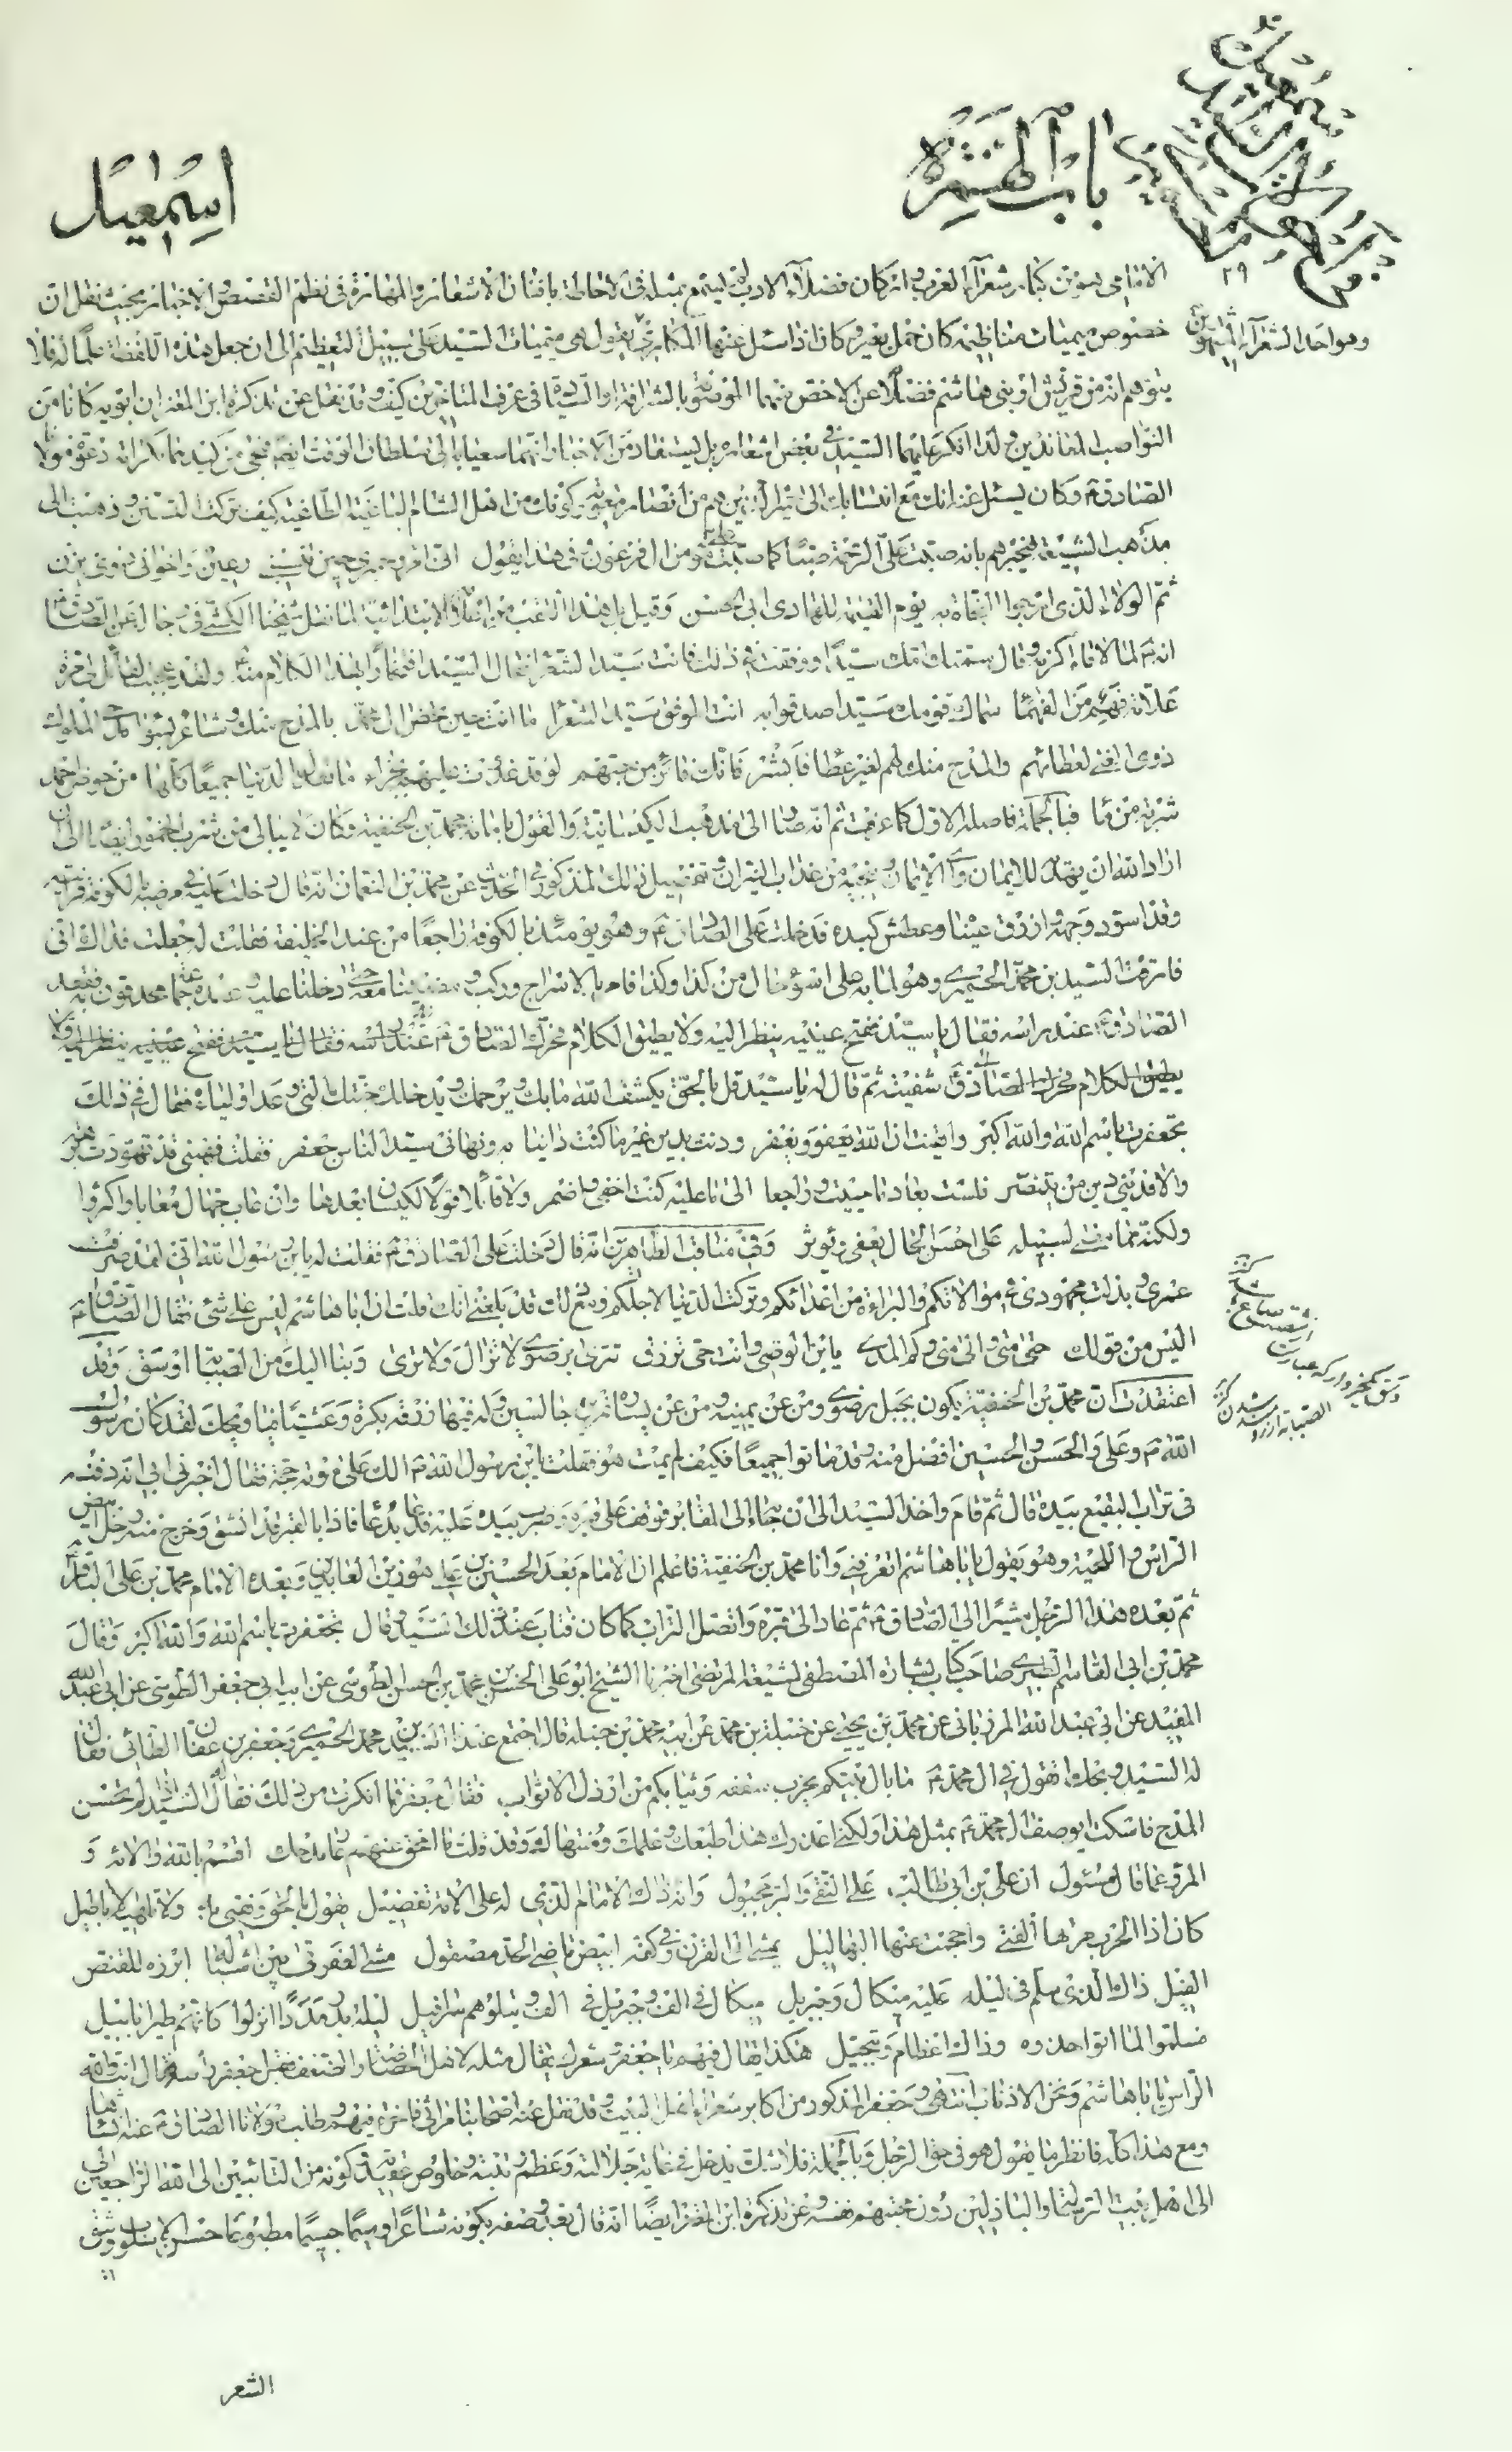 باب الهمزة
اسمعيل
٢٩
وهو احد الشعراء
الامامى هو من كبار شعراء العرب وانه كان فضلاء الادب لم يسمع بمثله فى الاحاطة بافنان الاشعار والمهارة فى نظم القصص والاخبار بحيث نقل ان
خصوص ميميات مناظيمه كان حمل بعير وكان اذا سئل عنها المكارى يقول هى ميميات السيد على سبيل التعظيم الى ان جعل هذه اللفظة علما له فلا
يتوهم انه من قريش او بنى هاشم فضلا عن الاخص منهما الموضوع بالشرافة والسيادة فى عرف المتاخرين كيف وقد نقل عن تذكرة ابن المعتز ان ابويه كانا من
النواصب المعاندين ولذا انكر عليهما السيد فى بعض اشعاره بل يستفاد من الاخبار انهما سعيا به الى سلطان الوقت ايضا فنجى من كيدهما بكرامة دعوة مولانا
الصادق ع وكان يسئل عنه انك مع انتسابك الى الذين هم من انصار معوية وكونك من اهل الشام الباغية الطاغية كيف تركت التسنن وذهبت الى
مذهب الشيعة فيخبرهم بانه صبت على الرحمة صبا كما صبت على مؤمن ال فرعون وفى هذا يقول انى امرؤ حميرى حين تنسبنى رعين واخوالى ذوو يزن
ثم الولاء الذى ارجوا النجاة به يوم القيمة للهادى ابى الحسن وقيل ان هذا اللقب من الابتداء لما نقل شيخنا الكشى فى رجاله عن الصادق ع
انه ع لما لاقاه اكرمه وقال سمتك امك سيدا ووفقت فى ذلك فانت سيد الشعراء فقال السيد افتخارا بهذا الكلام منه ولقد عجبت لقائل لى مرة
علامة فهم من الفهماء سماك قومك سيدا صدقوا به انت الموفق سيد الشعراء ما انت حين تخص ال محمد بالمدح منك وشاعر بسواء مدح الملوك
ذوى الغنى لعطائهم والمدح منك لهم لغير عطاء فابشر فانك فائز من حبهم لو قد غدوت عليهم بجزاء ما تعدل الدنيا جميعا كلها من حوض احمد
شربة من ماء فبالجملة فاصله الاول كما عرفت ثم انه صار الى مذهب الكيسانية والقول بامامة محمد بن الحنفية وكان لا يبالى من شرب الخمور ايضا الى ان
اراد الله ان يهديه للايمان والامان وينجيه من عذاب النيران وتفصيل ذلك المذكور فى الحديث عن محمد بن النعمان انه قال دخلت عليه فى مرضه بالكوفة فرايته
وقد اسود وجهه وازرق عيناه وعطش كبده فدخلت على الصادق ع وهو يومئذ بالكوفة راجعا من عند الخليفة فقلت له جعلت فداك انى
فارقت السيد بن محمد الحميرى وهو لما به على اسوء حال من كذا وكذا فامر بالاسراج وركب ومضينا معه حتى دخلنا عليه وعنده جماعة محدقون به فقعد
الصادق ع عند راسه فقال يا سيد ففتح عينيه ينظر اليه ولا يطيق الكلام فحرك الصادق ع عند راسه فقال يا سيد ففتح عينيه ينظر اليه ولا
يطيق الكلام فحرك الصادق ع شفيته ثم قال له يا سيد قل بالحق يكشف الله ما بك ويرحمك ويدخلك جنته التى وعد اولياءه فقال فى ذلك
تجعفرت باسم الله والله اكبر وايقنت ان الله يعفو ويغفر ودنت بدين غير ما كنت داينا به ونهانى سيد الناس جعفر فقلت فهبنى قد تهودت برهة
والا فدينى دين من يتنصر فلست بعاد ما حييت وراجعا الى ما عليه كنت اخفى واضمر ولا قائلا قولا لكيسان بعدها وان عاب جهال معابا واكثروا
ولكنه مما مضى لسبيله على احسن الحال يعفى ويؤثر وفى مناقب الطاهرين انه قال دخلت على الصادق ع فقلت له يا بن رسول الله انى لقد صرفت
عمرى وبذلت مجهودى فى موالاتكم والبراءة من اعدائكم وتركت الدنيا لاجلكم ومع ذلك قد بلغنى انك قلت ان ابا هاشم ليس على شئ فقال الصادق ع
اليس من قولك حتى متى والى متى وكم المدى يا بن الوصى وانت حى ترزق تترى برضوى لا تزال ولا ترى وبنا اليك من الصبابة اوسق وقد
اعتقدت ان محمد بن الحنفية يكون بجبل رضوى ومن عن يمينه ومن عن يساره جالسين وله فيها رزقه بكرة وعشيا ويحك لقد كان رسول
الله ع وعلى والحسن والحسين افضل منه وقد ماتوا جميعا فكيف لم يمت هو فقلت يا بن رسول الله ع الك على موته حجة فقال اخبرنى ابى انه دفنه
فى تراب البقيع بيده قال ثم قام واخذ السيد الى ان جاء الى المقابر فوقف على قبره وضرب بيده عليه ودعا بدعاء فاذا بالقبر قد انشق وخرج منه رجل ابيض
الراس واللحية وهو يقول يا با هاشم تعرفنى وانا محمد بن الحنفية فاعلم ان الامام بعد الحسين بن على هو زين العابدين وبعده الامام محمد بن على الباقر
ثم بعده هذا الرجل مشيرا الى الصادق ع ثم عاد الى قبره واتصل التراب كما كان فتاب عند ذلك السيد وقال تجعفرت باسم الله والله اكبر وقال
محمد بن ابى القاسم الطبرى صاحب كتاب بشارة المصطفى لشيعة المرتضى اخبرنا الشيخ ابو على الحسن بن محمد بن الحسن الطوسى عن ابيه ابى جعفر الطوسى عن ابى عبد الله
المفيد عن ابى عبد الله المرزبانى عن محمد بن يحيى عن جبلة بن محمد عن ابيه محمد بن جبلة قال اجتمع عندنا السيد بن محمد الحميرى وجعفر بن عفان الطائى فقال
له السيد ويحك اتقول فى ال محمد ع ما بال بيتكم يخرب سقفه وثيابكم من ارذل الاثواب فقال جعفر فما انكرت من ذلك فقال له السيد اذا لم تحسن
المدح فاسكت ايوصف ال محمد ع بمثل هذا ولكنى اعذرك هذا طبعك وعلمك ومنتهاك وقد قلت ما امحو عنهم عار مدحك اقسم بالله والائه و
المرء عما قال مسئول ان على بن ابى طالب على التقى والبر مجبول وانه ذاك الامام الذى له على الامة تفضيل يقول بالحق ويقضى به ولا تلهيه الاباطيل
كان اذا الحرب مرتها القنى واحجمت عنها البهاليل يمشى الى القرن وفى كفه ابيض ماضى الحد مصقول مشى العفرنى بين اشباله ابرزه للقنص
الغيل ذاك الذى سلم فى ليلة عليه ميكال وجبريل ميكال فى الف وجبريل فى الف ويتلوهم سرافيل ليلة بدر مددا انزلوا كانهم طير ابابيل
فسلموا لما اتوا حذوه وذاك اعظام وتبجيل هكذا يقال فيهم يا جعفر وشعرك يقال مثله لاهل الخصاصة والضعف فقبل جعفر رأسه وقال انت والله
الراس يا با هاشم ونحن الاذناب انتهى وجعفر المذكور من اكابر شعراء اهل البيت وقد نقل عنه اصحابنا مراثى فاخرة فيهم وطلب مولانا الصادق ع عنه انشادها
ومع هذا كله فانظر ما يقول هو فى حق الرجل وبالجملة فلا شك يدخل فى غاية جلالته وعظم رتبته وخلوص عقيدته وكونه من التائبين الى الله الراجعين
الى اهل بيت الرسالة والباذلين دون محبتهم نفسه وعن تذكرة ابن المعتز ايضا انه قال بعد وصفه بكونه شاعرا وسيما جسيما مطبوعا حسن الاسلوب
الشعر